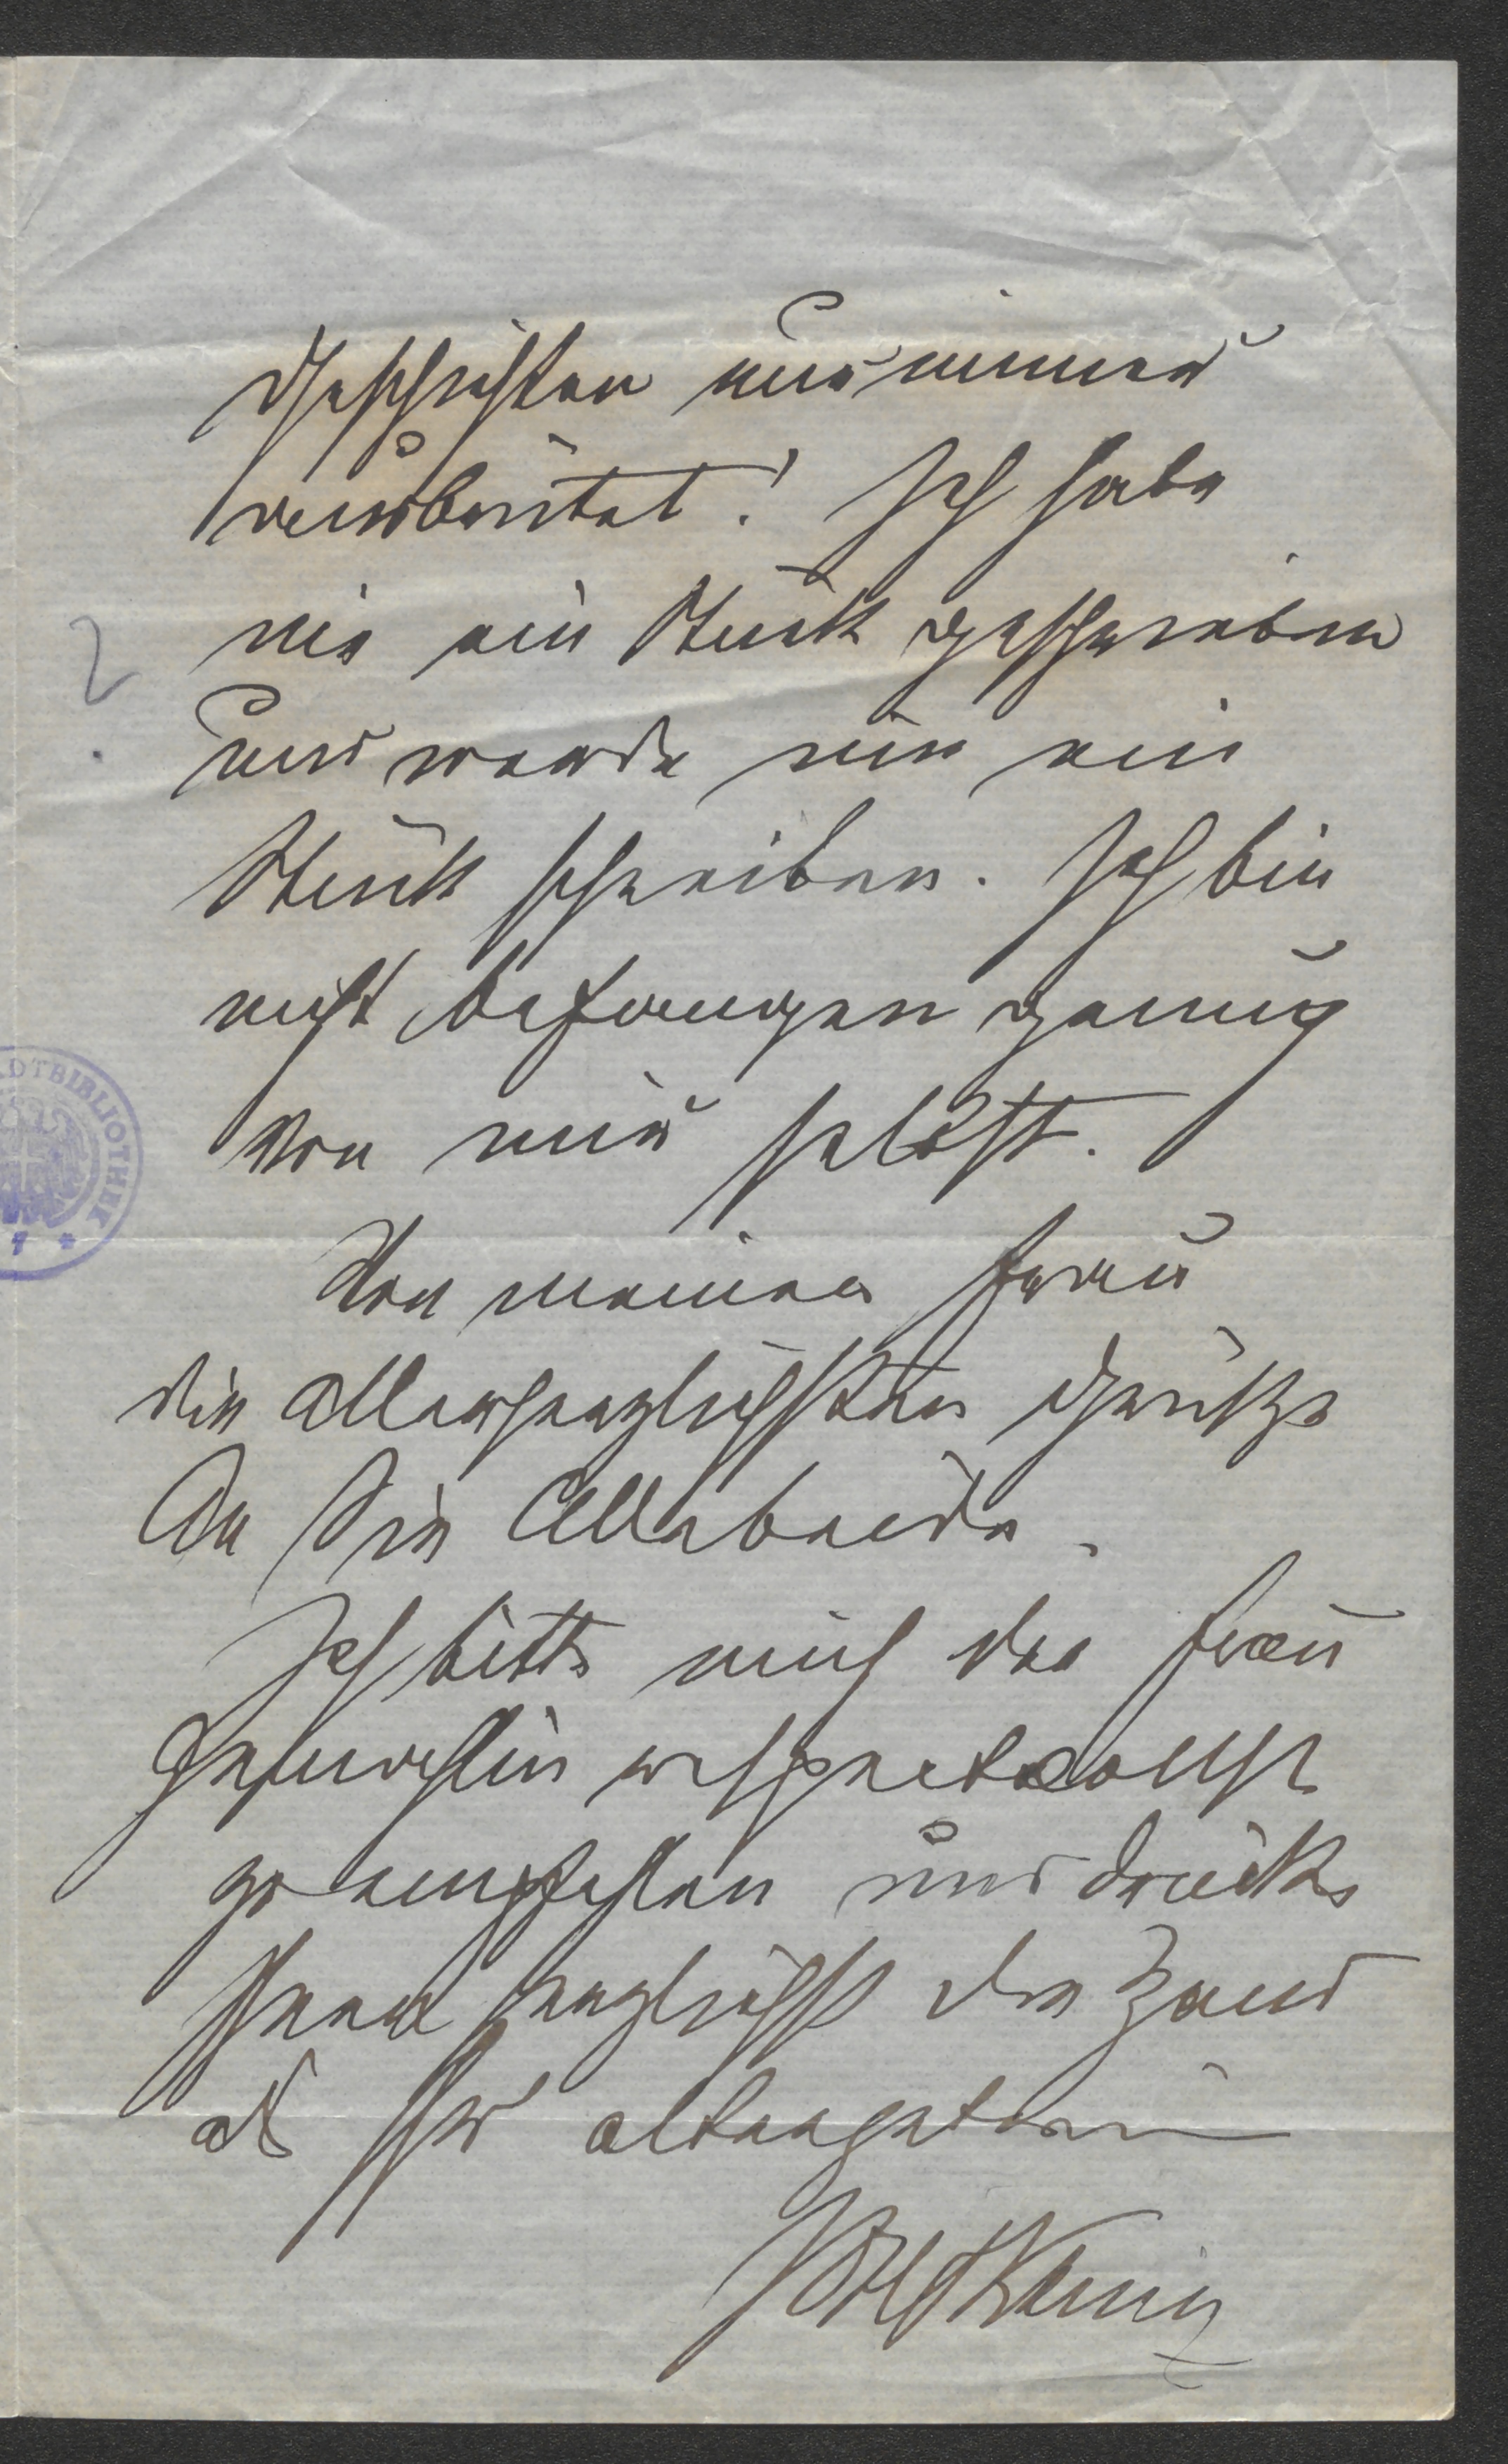 Geschichten nur immer
verbreitet! Ich habe
nie ein Stück geschrieben
und werde nie ein
Stück schreiben. Ich bin
nicht befangen genug
von mir selbst.
Von meiner Frau
die allerherzlichsten Grüße
An Sie Allebeide.
Ich bitte mich der Frau
Gemahlin respectvollst
zu empfehlen und drücke
Ihnen herzlichst die Hand
als Ihr altergebener
?
STADTBIBLIOTHEK